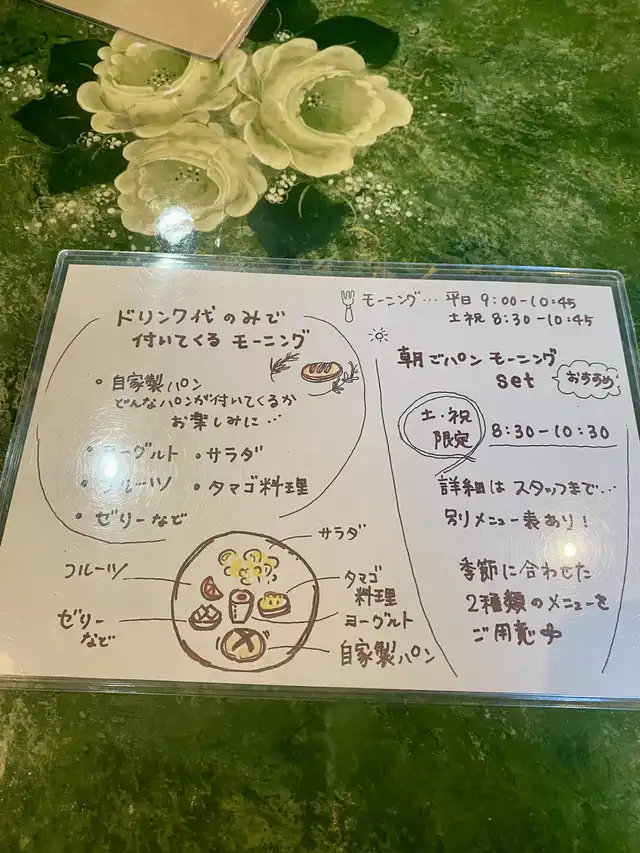 ドリンク代のみで
付いてくる モーニング
・自家製パン
どんなパンが付いてくるか
お楽しみに…
・ヨーグルト ・サラダ
・フルーツ ・タマゴ料理
・ゼリーなど
サラダ
フルーツ
タマゴ
料理
ゼリー
など
ヨーグルト
自家製パン
モーニング… 平日 9:00-10:45
土祝 8:30-10:45
朝ごパン モーニング
set
おすすめ
土・祝
限定
8:30-10:30
詳細は スタッフまで…
別メニュー表あり!
季節に合わせた
2種類のメニューを
ご用意中